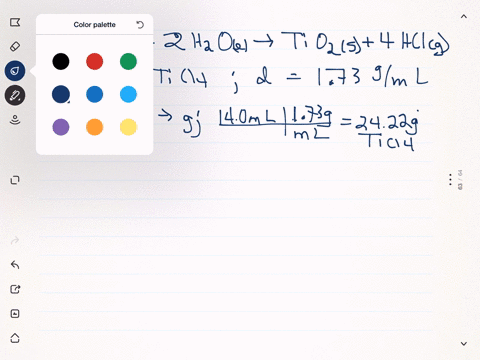 Color palette
2 H2O(l) → TiO2(s) + 4 HCl(g)
TiCl4 ; d = 1.73 g/mL
→ g; 14.0mL | 1.73g = 24.22g
mL TiCl4